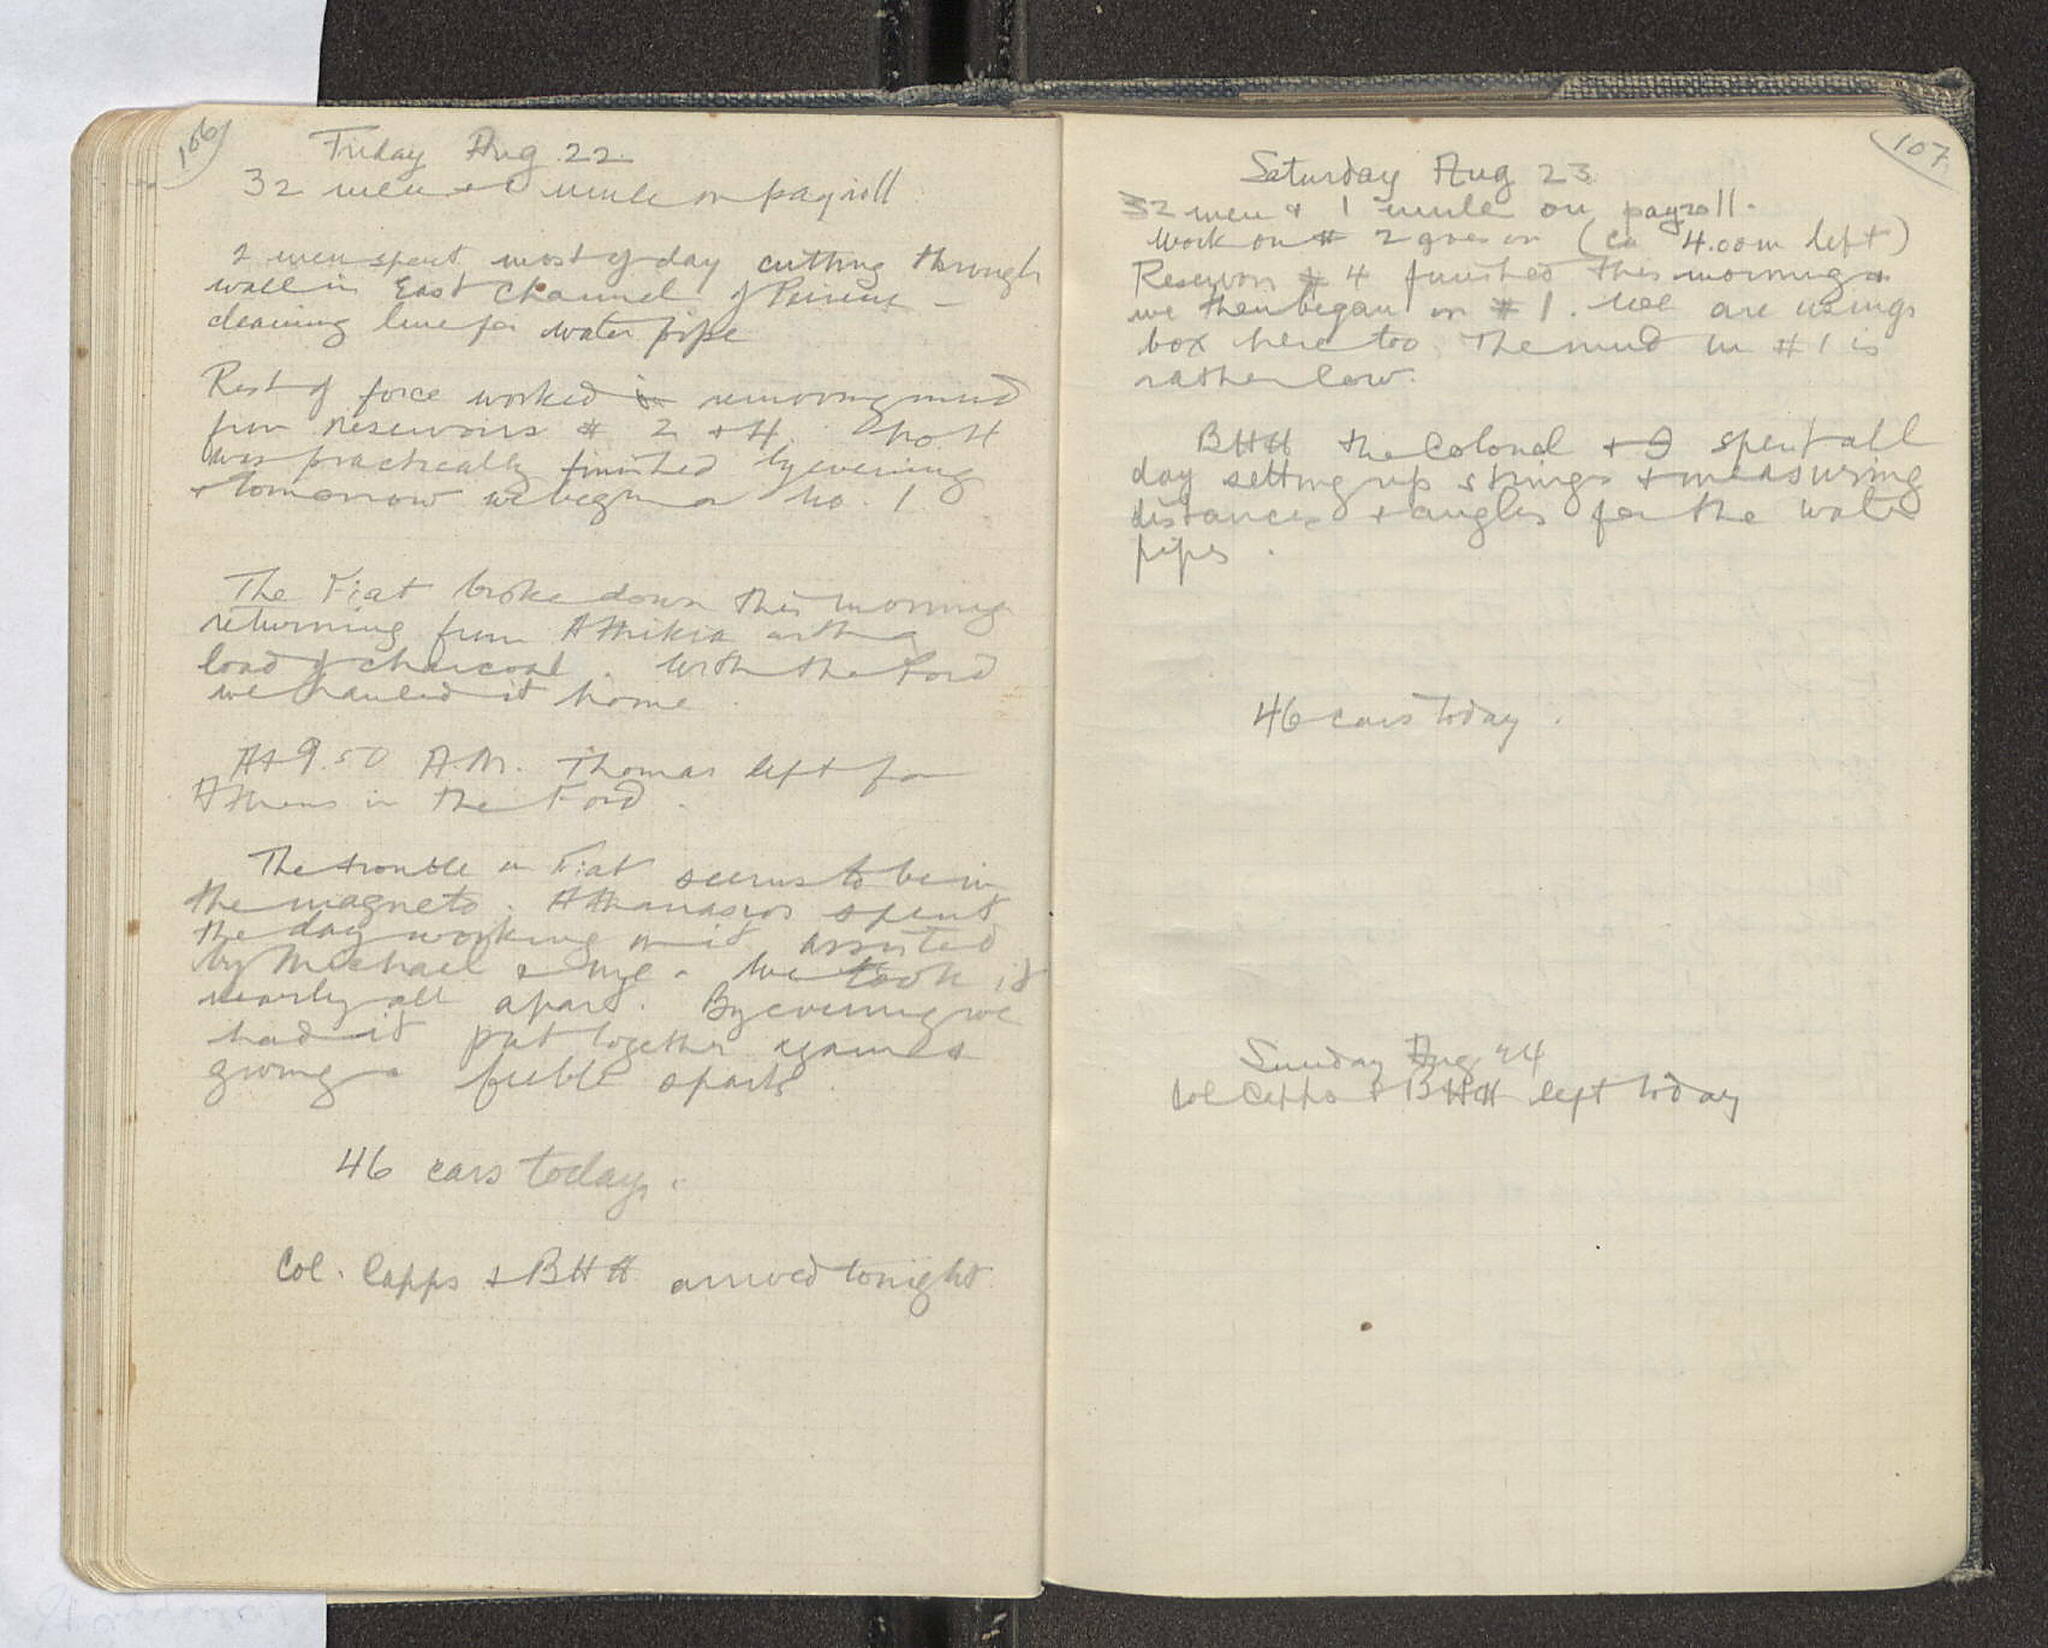 106
Friday Aug. 22.
32 men + 1 mule on payroll
2 men spent most of day cutting through
wall in East Channel of Peirene –
cleaning line for water pipe
Rest of force worked in removing mud
from reservoirs # 2 + 4. No 4
was practically finished by evening
+ tomorrow we begin on no. 1
The Fiat broke down this morning
returning from Athikia with a
load of charcoal. With the Ford
we hauled it home.
At 9.50 A.M. Thomas left for
Athens in the Ford.
The trouble in Fiat seems to be in
the magneto. Athanasios spent
the day working on it assisted
by Michael + me. We took it
nearly all apart. By evening we
had it put together again +
giving a feeble spark.
46 cars today.
Col. Capps + BHH arrived tonight
107
Saturday Aug 23
32 men + 1 mule on payroll.
Work on # 2 goes on (ca 4.00m left)
Reservoir # 4 finished this morning +
we then began on # 1. We are using
box here too. The mud in # 1 is
rather low.
BHH the Colonel + I spent all
day setting up strings + measuring
distances + angles for the water
pipes.
46 cars today.
Sunday Aug 24
Col Capps + BHH left today